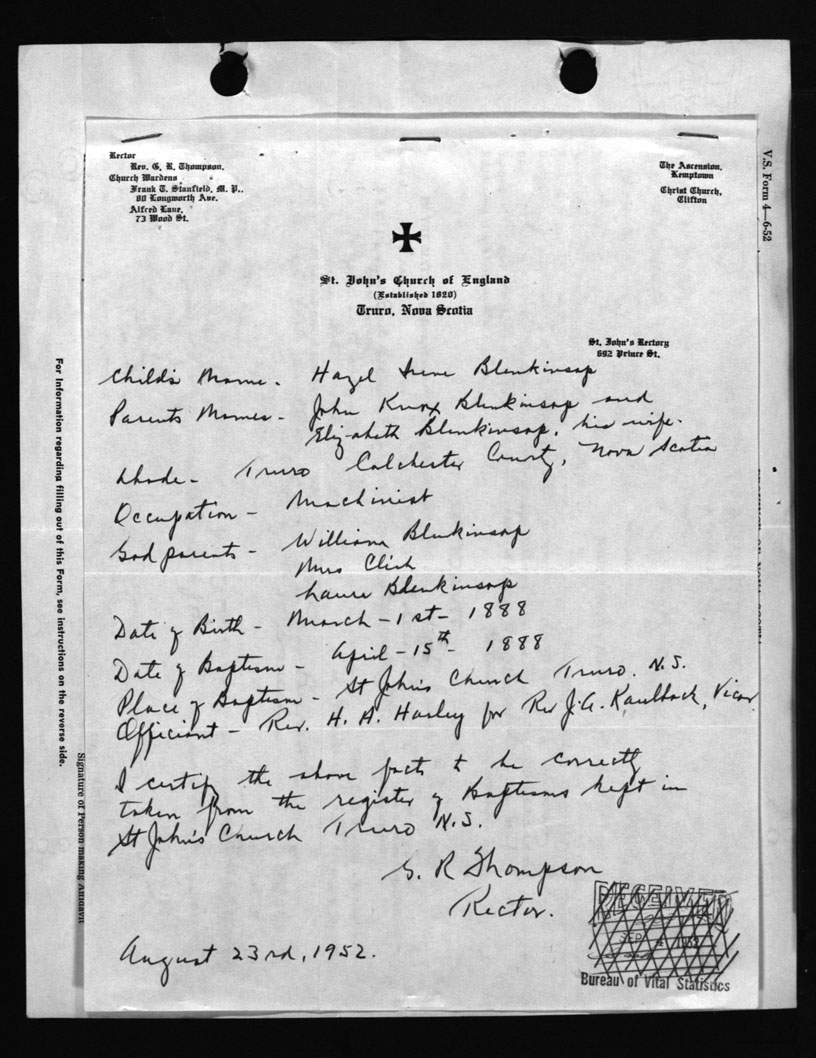 Rector
Rev. G. R. Thompson.
Church Wardens
Frank T. Stanfield, M. P.,
88 Longworth Ave.
Alfred Lane,
73 Wood St.
The Ascension,
Kemptown
Christ Church,
Clifton
V.S. Form 4—6-52
St. John's Church of England
(Established 1820)
Truro, Nova Scotia
St. John's Rectory
692 Prince St.
Child's Name - Hazel Irene Blenkinsop
Parents Names - John Knox Blenkinsop and
Elizabeth Blenkinsop, his wife.
Abode - Truro Colchester County, Nova Scotia
Occupation - Machinist
God parents - William Blenkinsop
Mrs Clish
Laura Blenkinsop
Date of Birth - March - 1st - 1888
Date of Baptism - April - 15th - 1888
Place of Baptism - St John's Church Truro. N.S.
Officiant - Rev. H. A. Harley for Rev J.A. Kaulback, Vicar
I certify the above facts to be correctly
taken from the register of Baptisms kept in
St John's Church Truro N.S.
G. R Thompson
Rector.
August 23rd, 1952.
RECEIVED
SEP 4 1952
Bureau of Vital Statistics
For information regarding filling out of this Form, see instructions on the reverse side.
Signature of Person making Affidavit